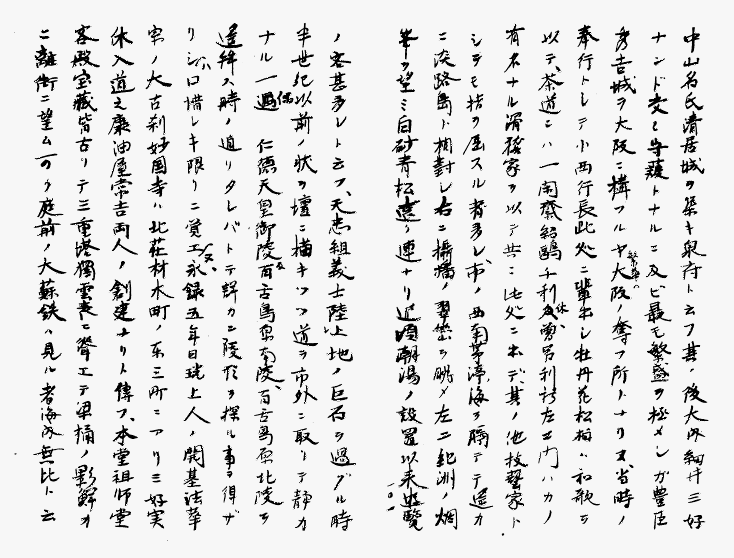 中山名氏清居城ヲ築キ泉府ト云フ其ノ後大内細井三好
ナンド交モ守護トナルニ及ビ最モ繁盛ヲ極メシガ豊臣
秀吉城ヲ大阪ニ構フルヤ大阪ノ奪フ所トナリヌ当時ノ
繁華ハ
奉行トシテ小西行長此処ニ輩出シ牡丹花松柏ハ和歌ヲ
以テ、茶道ニハ一閑斎紹鴎千利休、曽呂利新左エ門ハカノ
有名ナル滑稽家ヲ以テ共ニ此処ニ出デ、其ノ他技藝家ト
シテモ指ヲ屈スル者多シ、市ノ西南茅渟海ヲ隔テテ遥カ
ニ淡路島ト相對シ右ニ播摂ノ翠巒ヲ眺メ左ニ紀州ノ烟
峯ヲ望ミ白砂青松遠ク連ナリ近頃潮湯ノ設置以来遊覧
ノ客甚多シト云フ、天忠組義士陸上地ノ巨石ヲ過グル時
半世紀以前ノ状ヲ壇ニ描キツツ道ヲ市外ニ取リテ静カ
ナル一遇 仁徳天皇御陵百舌鳥泉南陵、百舌鳥原北陵ヲ
偶
遥拝ス時ノ迫リタレバトテ輝カニ陵形ヲ探ル事ヲ得ザ
リシハ口惜シキ限リニ覚エヌ、永録五年日珖上人ノ開基法華
宗ノ大古刹妙国寺ハ北荘材木町ノ東三町ニアリ三好実
休入道之康油屋常吉両人ノ創建ナリト傳フ、本堂祖師堂
客殿宝蔵皆古リテ三重塔獨雲表ニ聳エテ梁桷ノ影鮮カ
ニ離街ニ望ム可ク庭前ノ大蘇鉄ハ見ル者海内無比ト云